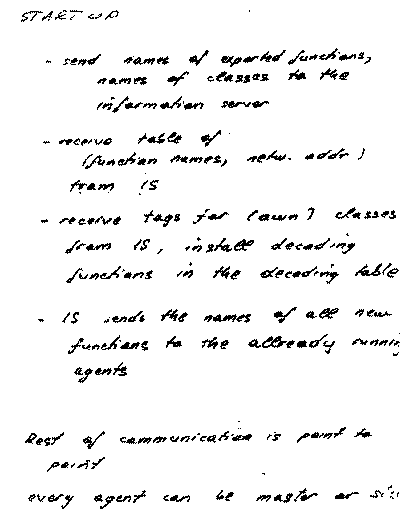 START UP
- send names of exported functions,
names of classes to the
information server
- receive table of
(function names, netw. addr)
from IS
- receive tags for (own) classes
from IS, install decoding
functions in the decoding table
- IS sends the names of all new
functions to the allready running
agents
Rest of communication is point to
point
every agent can be master or